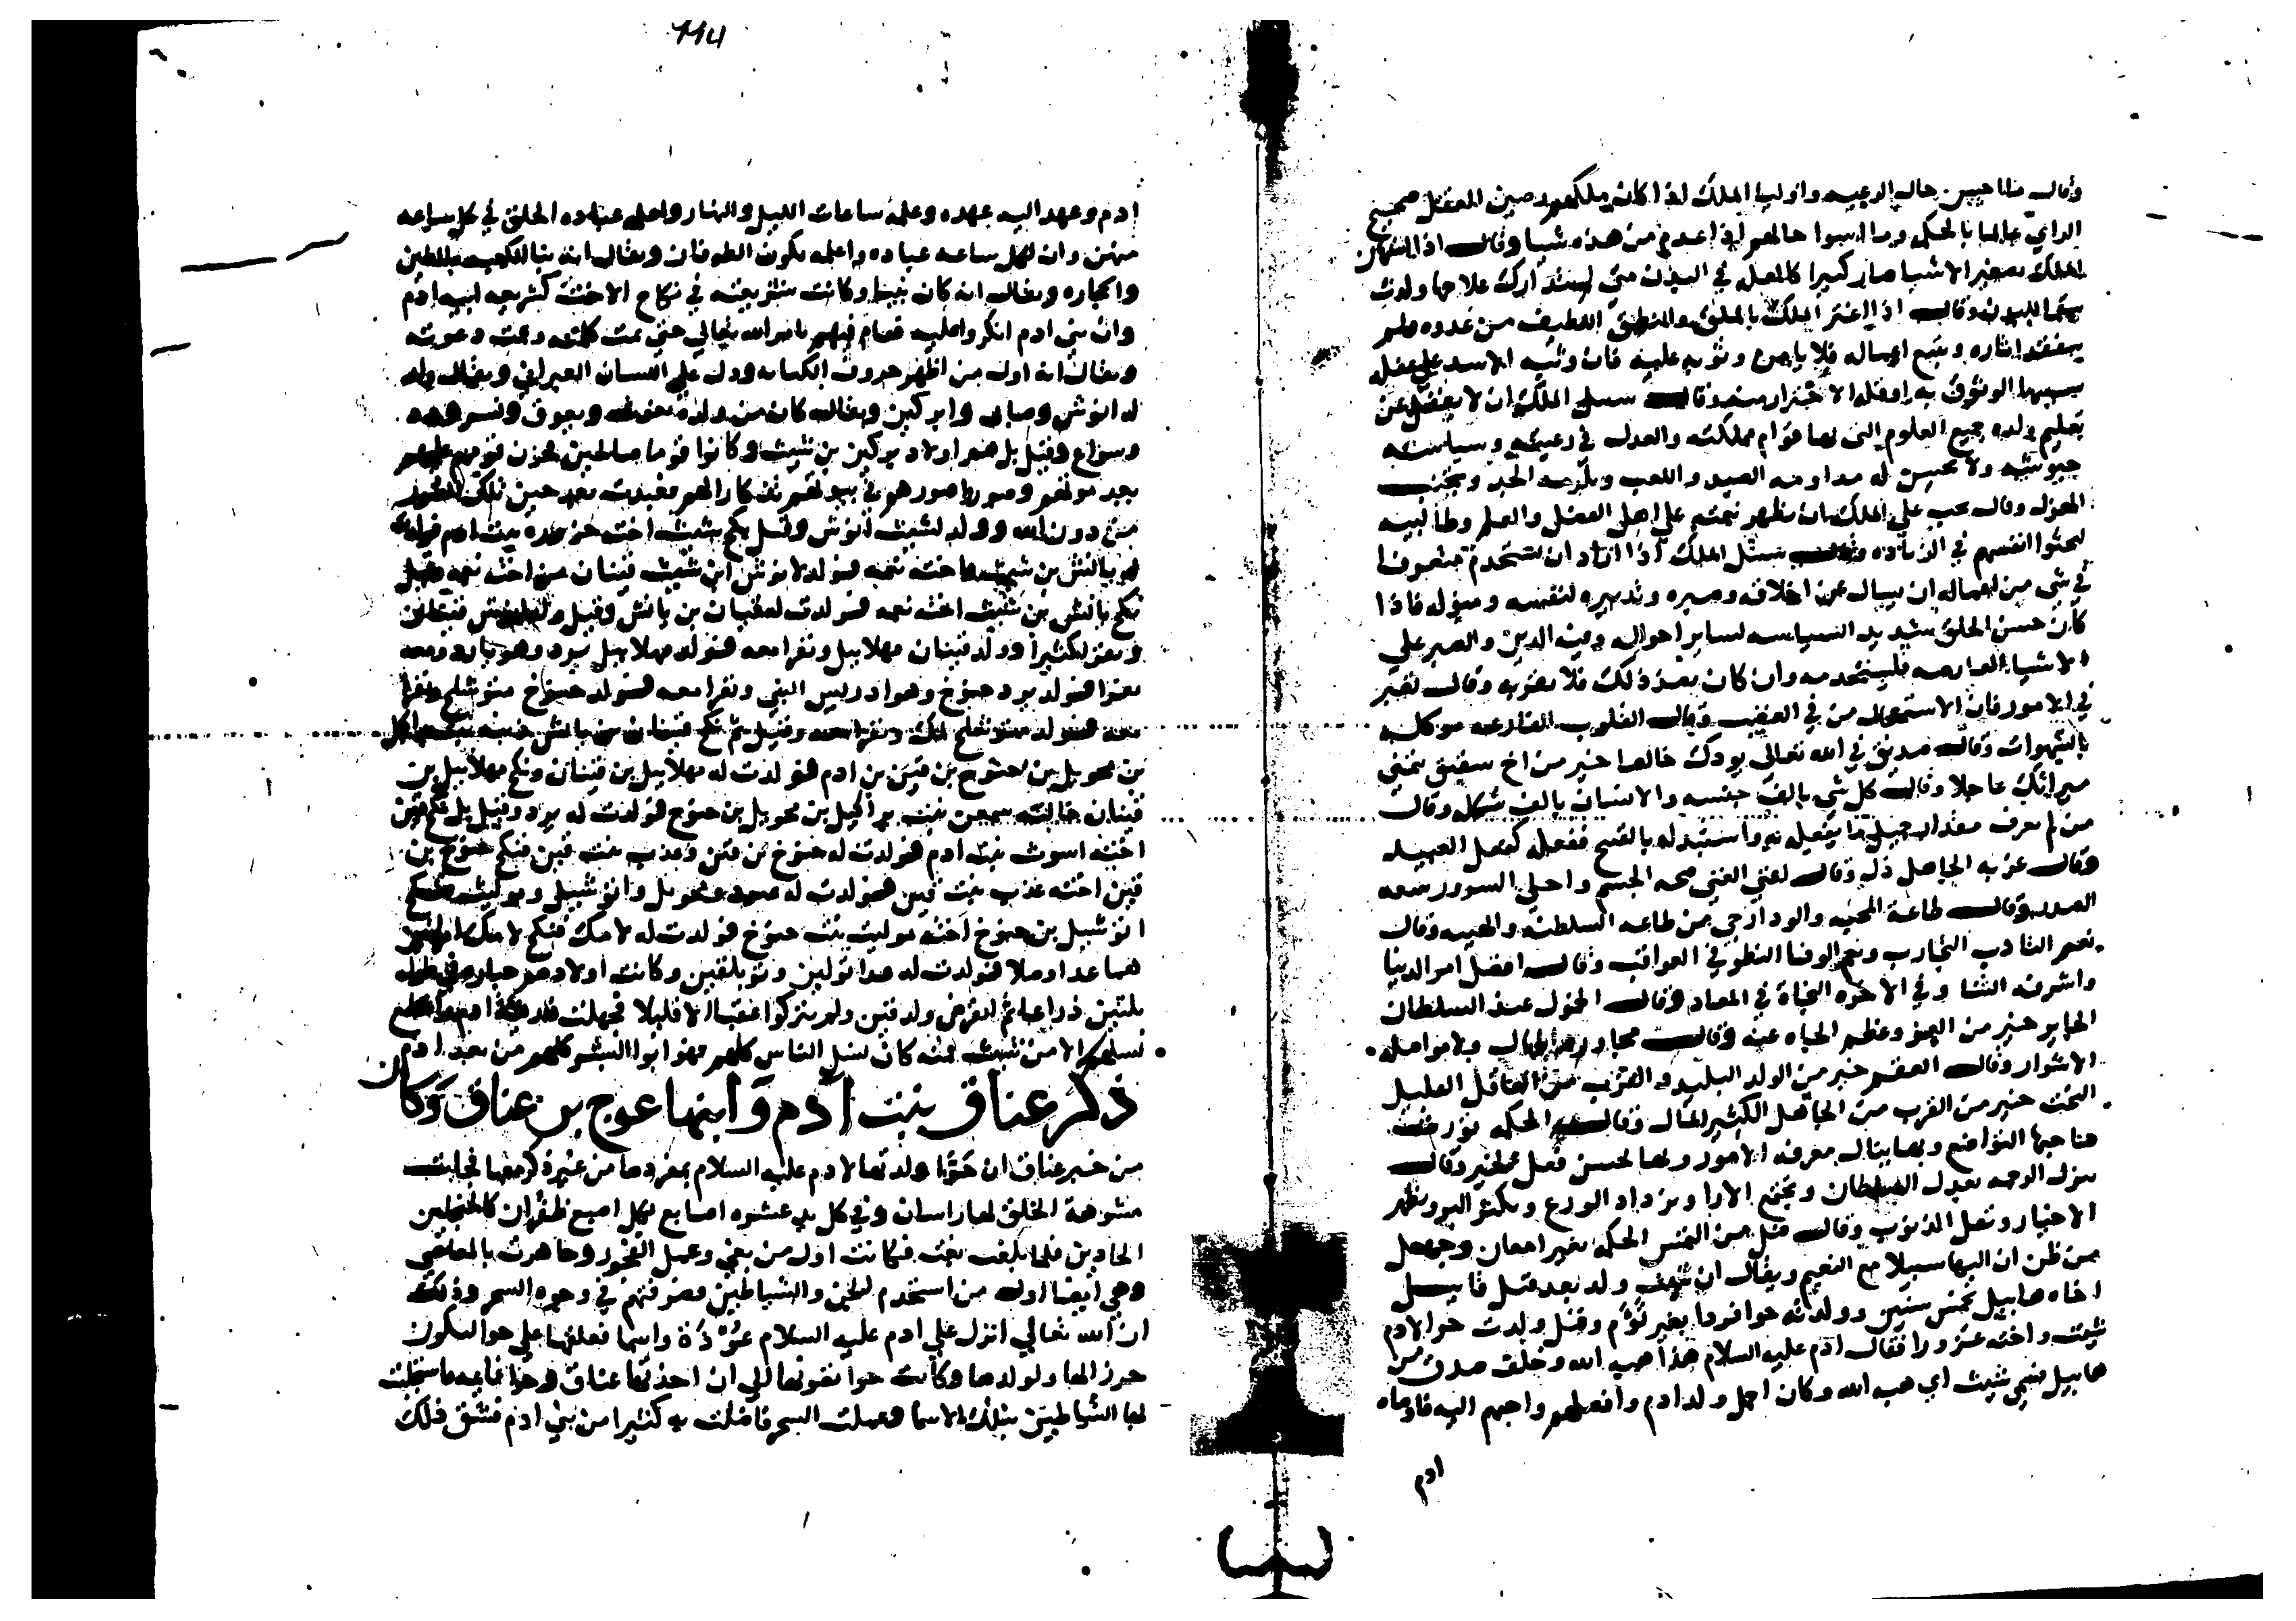 وقال ما احسن حال الرعيه واوليا الملك اذا كان ملكهم رصين العقل صحيح
الراي عالما بالحكمه وما اسوا حالهم اذا عدم من هذه شيا وقال اذا استهان
الملك بصغير الاشيا صار كبيرا كالعلل في البدن متى لم يتدارك علاجها ولدت
وقال اذا اغتر الملك بالملق والمنطق اللطيف من عدوه ولم
يتفقد اثاره ويتبع افعاله فلا يامن وثوبه عليه فان وثبه الاسد على غفله
سببها الوثوق به او قله الاحتراز منه وقال سبيل الملك ان لا يغفل عن
تعليم ولده جميع العلوم التي بها قوام مملكته والعدل في رعيته وسياسته
جيوشه ولا يحسن له مداومه الصيد واللعب ويلزمه الجد ويجنب
الهزل وقال يجب على الملك ان يظهر نعمته على اهل الفضل والعلم وطالبيه
ليحثوا انفسهم في الزياده وقال سبيل الملك اذا اراد ان يستخدم
في شي من اعماله ان يسال عن اخلاقه وصبره وتدبيره لنفسه ومنزله فاذا
كان حسن الخلق شديد السياسه لساير احواله ومعه الدين والصبر على
الاشيا العارضه فليستخدمه وان كان بضد ذلك فلا يقربه وقال
في الامور فان الاستعجال من وقال القلوب الفارغه موكله
بالشهوات وقال صديق في الله تعالى يودك خالصا خير من اخ شقيق يتمنى
ميراثك عاجلا وقال كل شي يالف جنسه والانسان يالف شكله وقال
من لم يعرف مقدار جميل ما يفعل به واستبدله بالقبح ففعله كفعل
وقال عز به الجاهل ذل وقال اغنى الغنى صحه الجسم واحلى السرور سعه
الصدر وقال طاعة المحبه والود ارجي من طاعه السلطنه والهيبه وقال
نعم التادب التجارب ونعم النظر في العواقب وقال افضل امر الدنيا
واشرفه الثنا وفي الاخره النجاة في المعاد وقال الخمول عند السلطان
الجاير خير من العز وعظم الجاه عنه وقال ولا مواصله
الاشرار وقال العقم خير من الولد البليد والقرب من العاقل القليل
البخت خير من القرب من الجاهل الكثير المال وقال الحكمه تورث
صاحبها التواضع وبها ينال معرفه الامور وبها يحسن فعل الخير وقال
بعدل السلطان ويجمع الارا ويزداد الورع ويكثر البر ويظهر
الاخيار وتقل الذنوب وقال من التمس الحكمه بغير امعان وجهل
من ظن ان اليها سبيلا مع النعيم ويقال ان شيث ولد بعد قتل قابيل
اخاه هابيل بخمس سنين وولدته حوا فردا بغير توم وقيل ولدت حوا لادم
شيث واخته عزورا فقال ادم عليه السلام هذا هبه الله وخلف صدق من
هابيل فسمي شيث اي هبه الله وكان اجمل ولد ادم وافضلهم واحبهم اليه فاوصاه
ادم
114
ادم وعهد اليه عهده وعلمه ساعات الليل والنهار واعلمه عباده الخلق في كل ساعه
منهن وان لكل ساعه عباده واعلمه بكون الطوفان ويقال انه بنا الكعبه بالطين
والحجاره ويقال انه كان نبيا وكانت شريعته في نكاح الاخت كشريعه ابيه ادم
وان بني ادم انكروا عليه فقام فيهم بامر الله تعالى حتى تمت كلمته وعمت دعوته
ويقال انه اول من اظهر حروف الكتابه ودل على اللسان العبراني ويقال ولد
له انوش وصابى وابركين ويقال كان من ولده يغوث ويعوق ونسر وود
وسواع وقيل بل هم اولاد بركين بن شيث وكانوا قوما صالحين فحزن قومهم عليهم
بعد موتهم وصوروا صورهم في بيوتهم تذكارا لهم فعبدت بعد حين تلك الصور
من دون الله وولد لشيث انوش وقيل نكح شيث اخته حزوره بنت ادم فولدت
له يانش بن شيث واخته نعمه فولد لانوش ابن شيث قينان من اخته نعمه وقيل
نكح يانش بن شيث اخته نعمه فولدت له قينان بن يانش وقيل ولد لانوش قينان
ونفر كثيرا وولد قينان مهلاييل ونفرا معه فولد مهلاييل يرد وهو يارد ومعه
نفرا فولد يرد حنوخ وهو ادريس النبي ونفرا معه فولد حنوخ متوشلح ونفرا
معه فولد متوشلح لمك ونفرا معه وقيل ثم نكح قينان بن يانش
بن محويل بن حنوخ بن قين بن ادم فولدت له مهلاييل بن قينان ونكح مهلاييل بن
قينان خالته سمعن بنت براكيل بن محويل بن حنوخ فولدت له يرد وقيل بل نكح قين
اخته اسوث بنت ادم فولدت له حنوخ بن قين وعذب بنت قين فنكح حنوخ بن
قين اخته عذب بنت قين فولدت له ومحويل وانوشيل وموليث فنكح
انوشيل بن حنوخ اخته موليث بنت حنوخ فولدت له لامك فنكح لامك امراتين
هما عدا وصلا فولدت له عدا تولين وتوبلقين وكانت اولادهم جبابره في طول
ثلثين ذراعا ثم انقرض ولد قين ولم يتركوا عقبا الا قليلا فجهلت ذريه ادم وانقطع
نسلهم الا من شيث فمنه كان نسل الناس كلهم فهو ابوا البشر كلهم من بعد ادم
ذكر عناق بنت آدم وابنها عوج بن عناق وكان
من خبر عناق ان حوّا ولدتها لادم عليه السلام بمفردها من غير ذكر معها فجات
مشوهة الخلق لها راسان وفي كل يد عشره اصابع لكل اصبع ظفران كالمنجلين
الحادين فلما بلغت بغت فكانت اول من بغى وعمل الفجور وجاهرت بالمعاصي
وهي ايضا اول من استخدم الجن والشياطين وصرفتهم في وجوه السحر وذلك
ان الله تعالى انزل على ادم عليه السلام عوذة واسما فعلقها على حوا لتكون
حرزا لها ولولدها وكانت حوا تقربها الى ان اخذتها عناق وحوا غايبه فاستجلبت
لها الشياطين بتلك الاسما وعملت السحر فاضلت به كثيرا من بني ادم فشق ذلك